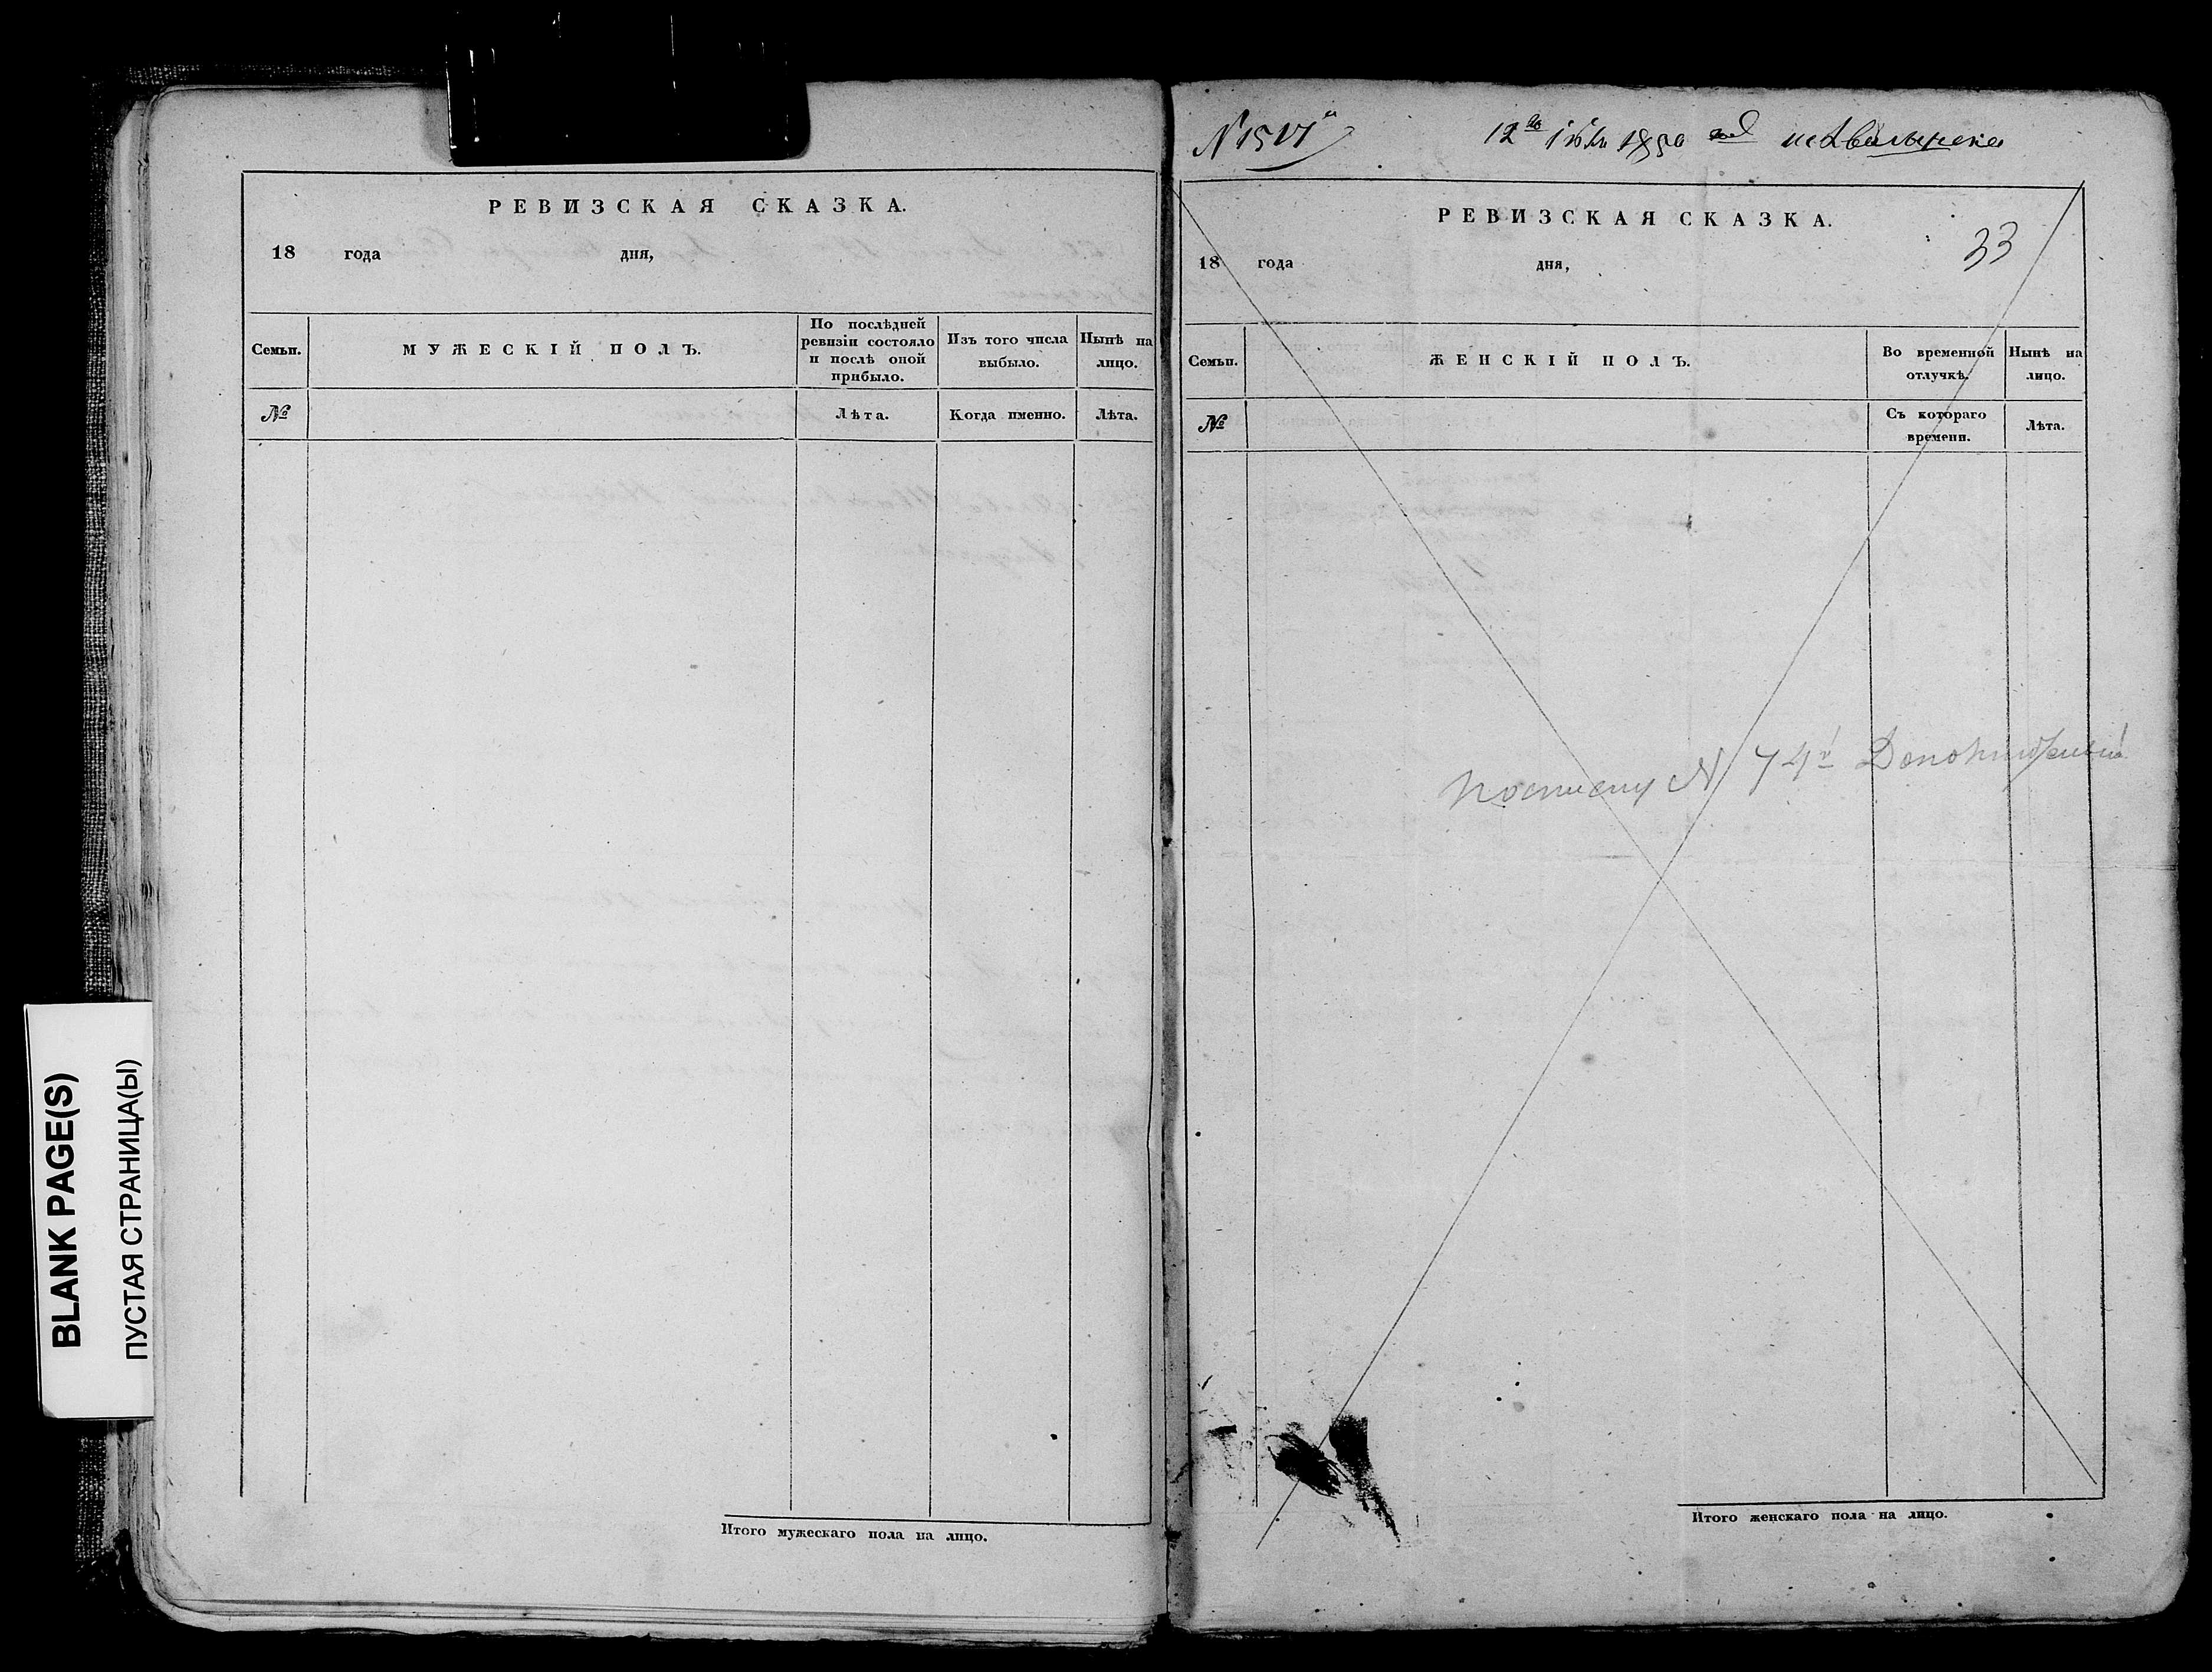 РЕВИЗСКАЯ СКАЗКА.
18 года дня,
Семьи. МУЖЕСКІЙ ПОЛЪ. По послѣдней ревизіи состояло и послѣ оной прибыло. Изъ того числа выбыло. Нынѣ на лицо.
№ Лѣта. Когда именно. Лѣта.
Итого мужескаго пола на лицо.
BLANK PAGE(S)
ПУСТАЯ СТРАНИЦА(Ы)
12 1850
РЕВИЗСКАЯ СКАЗКА.
33
18 года дня,
Семьи. ЖЕНСКІЙ ПОЛЪ. Во временной отлучкѣ. Нынѣ на лицо.
№ Съ котораго времени. Лѣта.
N 74
Итого женскаго пола на лицо.